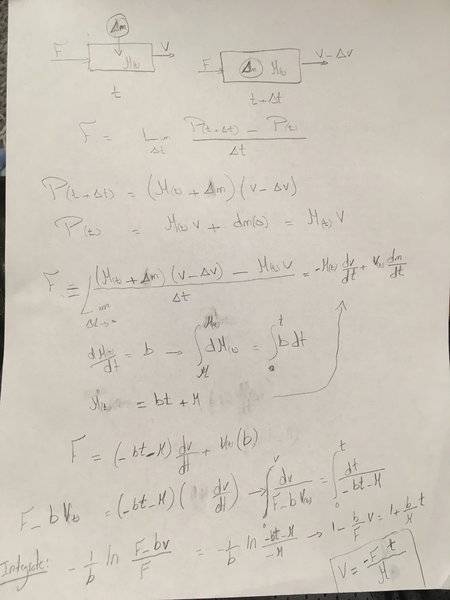 Δm
F M(t) V
t
F Δm M(t) V-ΔV
t+Δt
F = lim Δt P(t+Δt) - P(t) / Δt
P(t+Δt) = (M(t) + Δm)(V-ΔV)
P(t) = M(t) V + dm(0) = M(t) V
F = lim Δt→0 (M(t) + Δm)(V-ΔV) - M(t) V / Δt = -M(t) dv/dt + V(t) dm/dt
dM(t)/dt = b → ∫_M^M(t) dM(t) = ∫_0^t b dt
M(t) = bt + M
F = (-bt-M) dv/dt + V(t) (b)
F - b V(t) = (-bt-M) (dv/dt) → ∫_0^V dv / F-bV(t) = ∫_0^t dt / -bt-M
Integrate: -1/b ln F-bv / F = -1/b ln -bt-M / -M → 1 - b/F V = 1 + b/M t
V = -F t / M